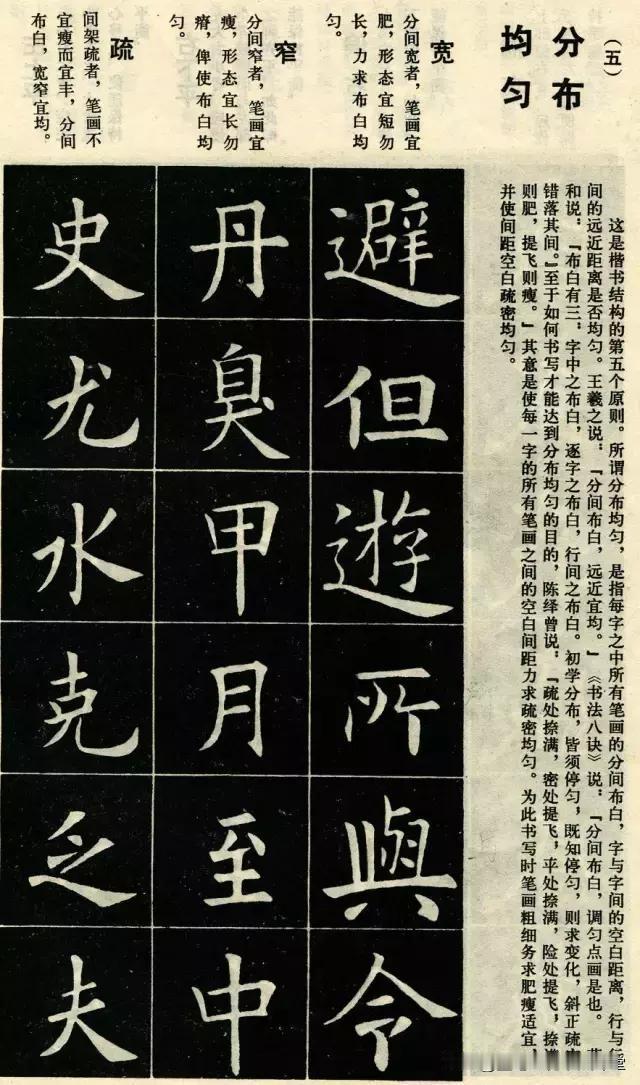 （五）
分布
均匀
这是楷书结构的第五个原则。所谓分布均匀，是指每字之中所有笔画的分间布白，字与字间的空白距离，行与行
间的远近距离是否均匀。王羲之说：『分间布白，远近宜均。』《书法八诀》说：『分间布白，调匀点画是也。
和说：『布白有三：字中之布白，逐字之布白，行间之布白。初学分布，皆须停匀，既知停匀，则求变化，斜正疏
错落其间。』至于如何书写才能达到分布均匀的目的，陈绎曾说：『疏处捺满，密处提飞，平处捺满，险处提飞，捺满
则肥，提飞则瘦。』其意是使每一字的所有笔画之间的空白间距力求疏密均匀。为此书写时笔画粗细务求肥瘦适宜，
并使间距空白疏密均匀。
宽
分间宽者，笔画宜
肥，形态宜短勿
长，力求布白均
匀。
避
但
遊
所
與
令
窄
分间窄者，笔画宜
瘦，形态宜长勿
瘠，俾使布白均
匀。
丹
臭
甲
月
至
中
疏
间架疏者，笔画不
宜瘦而宜丰，分间
布白，宽窄宜均。
史
尤
水
克
乏
夫